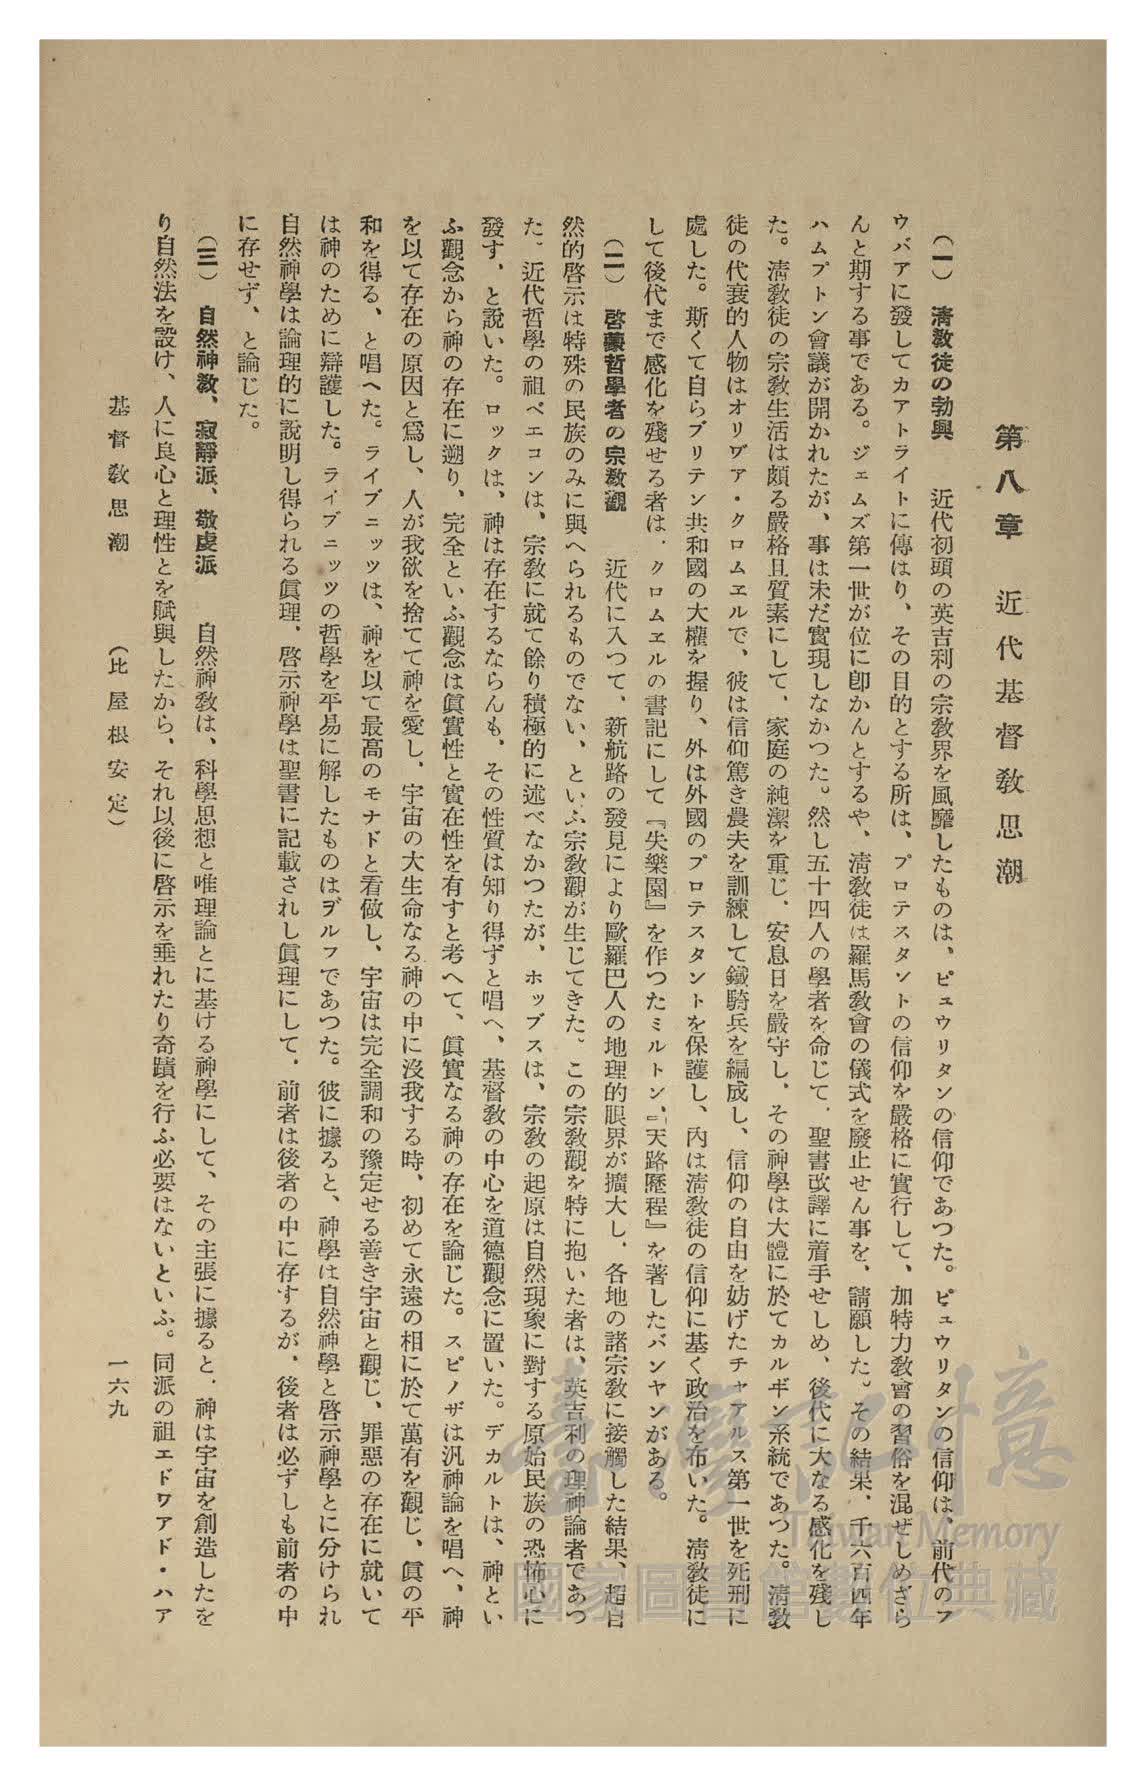 第八章　近代基督敎思潮
（一）　淸敎徒の勃興　　近代初頭の英吉利の宗敎界を風靡したものは、ピュウリタンの信仰であつた。ピュウリタンの信仰は、前代のフ
ウバアに發してカアトライトに傳はり、その目的とする所は、プロテスタントの信仰を嚴格に實行して、加特力敎會の習俗を混ぜしめざら
んと期する事である。ジェムズ第一世が位に卽かんとするや、淸敎徒は羅馬敎會の儀式を廢止せん事を、請願した。その結果、千六百四年
ハムプトン會議が開かれたが、事は未だ實現しなかつた。然し五十四人の學者を命じて、聖書改譯に着手せしめ、後代に大なる感化を殘し
た。淸敎徒の宗敎生活は頗る嚴格且質素にして、家庭の純潔を重じ、安息日を嚴守し、その神學は大體に於てカルギン系統であつた。淸敎
徒の代衰的人物はオリヷア・クロムエルで、彼は信仰篤き農夫を訓練して鐵騎兵を編成し、信仰の自由を妨げたチャアルス第一世を死刑に
處した。斯くて自らブリテン共和國の大權を握り、外は外國のプロテスタントを保護し、內は淸敎徒の信仰に基く政治を布いた。淸敎徒に
して後代まで感化を殘せる者は、クロムエルの書記にして『失樂園』を作つたミルトン、『天路歷程』を著したバンヤンがある。
（二）　啓蒙哲學者の宗敎觀　　近代に入つて、新航路の發見により歐羅巴人の地理的眼界が擴大し、各地の諸宗敎に接觸した結果、超自
然的啓示は特殊の民族のみに與へられるものでない、といふ宗敎觀が生じてきた。この宗敎觀を特に抱いた者は、英吉利の理神論者であつ
た。近代哲學の祖ベエコンは、宗敎に就て餘り積極的に述べなかつたが、ホッブスは、宗敎の起原は自然現象に對する原始民族の恐怖心に
發す、と說いた。ロックは、神は存在するならんも、その性質は知り得ずと唱へ、基督敎の中心を道德觀念に置いた。デカルトは、神とい
ふ觀念から神の存在に遡り、完全といふ觀念は眞實性と實在性を有すと考へて、眞實なる神の存在を論じた。スピノザは汎神論を唱へ、神
を以て存在の原因と爲し、人が我欲を捨てて神を愛し、宇宙の大生命なる神の中に沒我する時、初めて永遠の相に於て萬有を觀じ、眞の平
和を得る、と唱へた。ライブニッツは、神を以て最高のモナドと看做し、宇宙は完全調和の豫定せる善き宇宙と觀じ、罪惡の存在に就いて
は神のために辯護した。ライブニッツの哲學を平易に解したものはヺルフであつた。彼に據ると、神學は自然神學と啓示神學とに分けられ
自然神學は論理的に說明し得られる眞理、啓示神學は聖書に記載されし眞理にして、前者は後者の中に存するが、後者は必ずしも前者の中
に存せず、と論じた。
（三）　自然神敎、寂靜派、敬虔派　　自然神敎は、科學思想と唯理論とに基ける神學にして、その主張に據ると、神は宇宙を創造したを
り自然法を設け、人に良心と理性とを賦與したから、それ以後に啓示を垂れたり奇蹟を行ふ必要はないといふ。同派の祖エドワアド・ハア
基督敎思潮　（比屋根安定）　一六九
臺灣記憶
Taiwan Memory
國家圖書館數位典藏